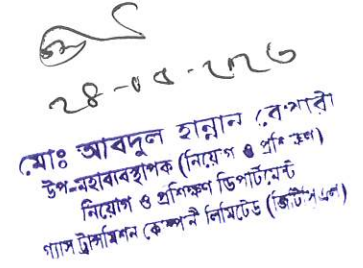 ২৪-০৫-২০২৩
মোঃ আবদুল হান্নান বেপারী
উপ-মহাব্যবস্থাপক (নিয়োগ ও প্রশিক্ষণ)
নিয়োগ ও প্রশিক্ষণ ডিপার্টমেন্ট
গ্যাস ট্রান্সমিশন কোম্পানী লিমিটেড (জিটিসিএল)